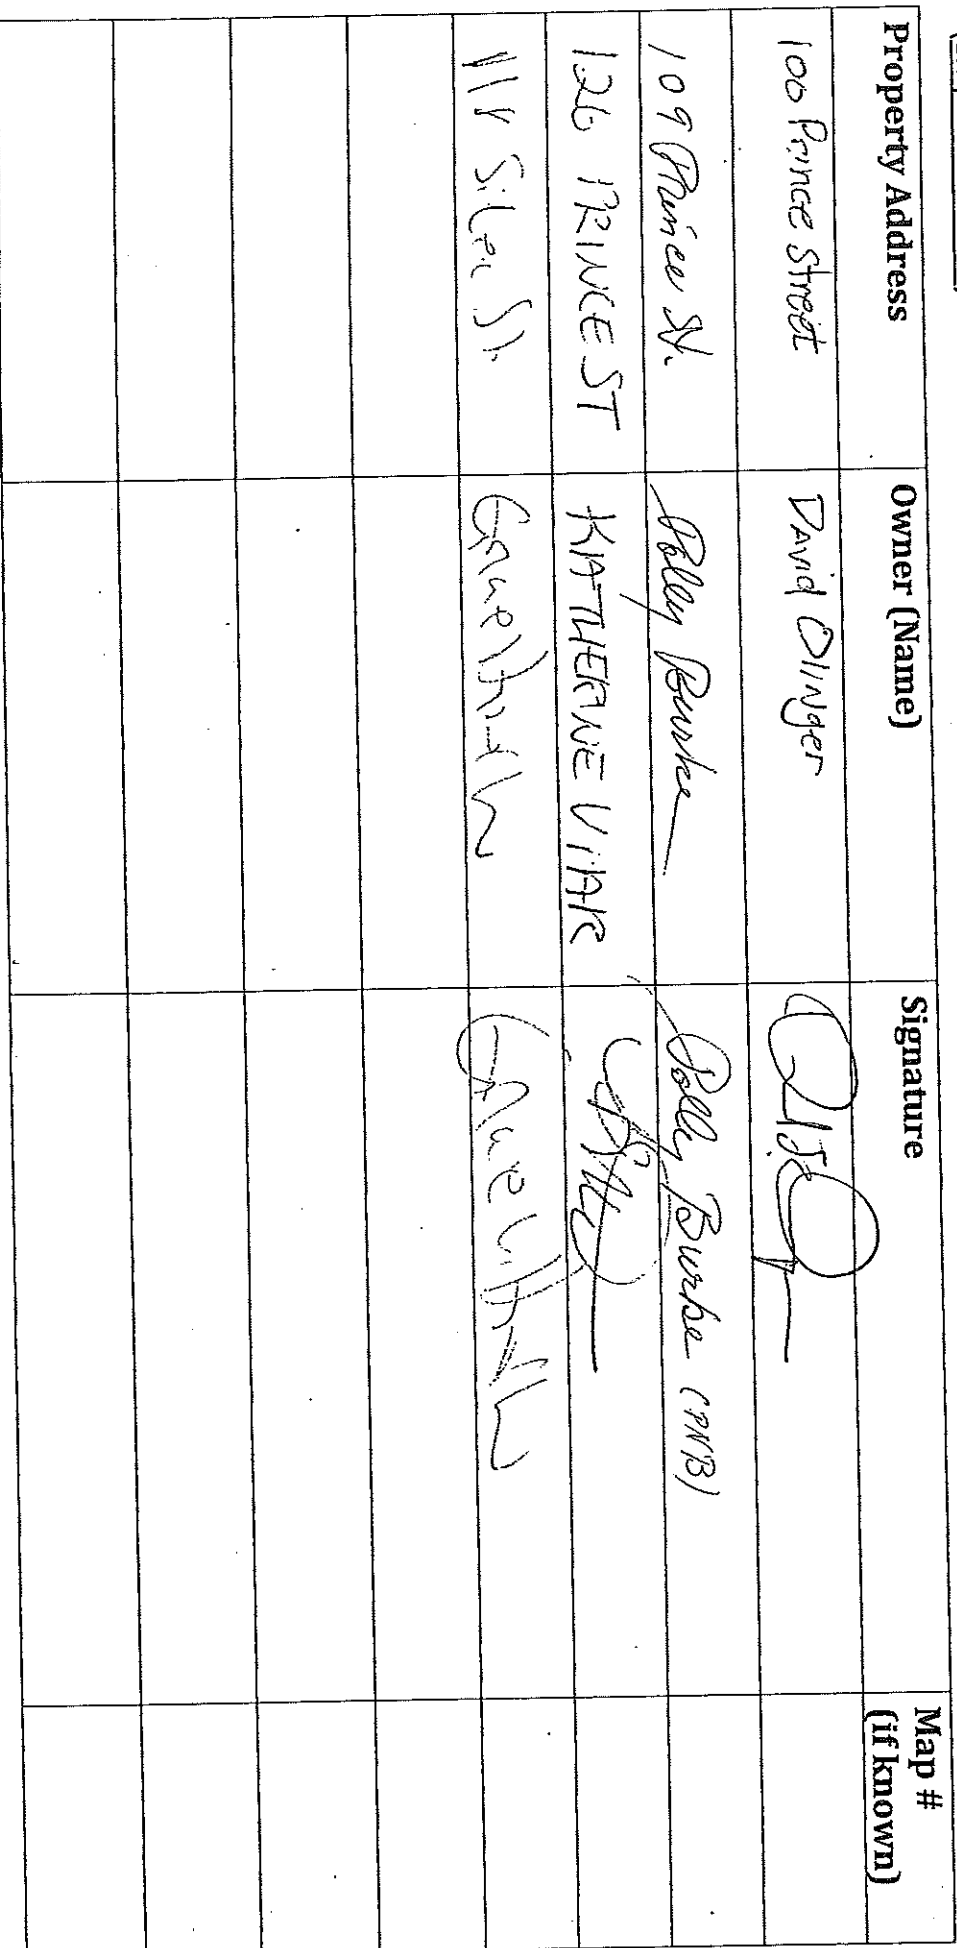 Property Address Owner (Name) Signature Map #
(if known)
100 Prince Street David Olinger
109 Prince St. Polly Burke Polly Burke (PNB)
126 PRINCE ST KATHERINE
111 St.